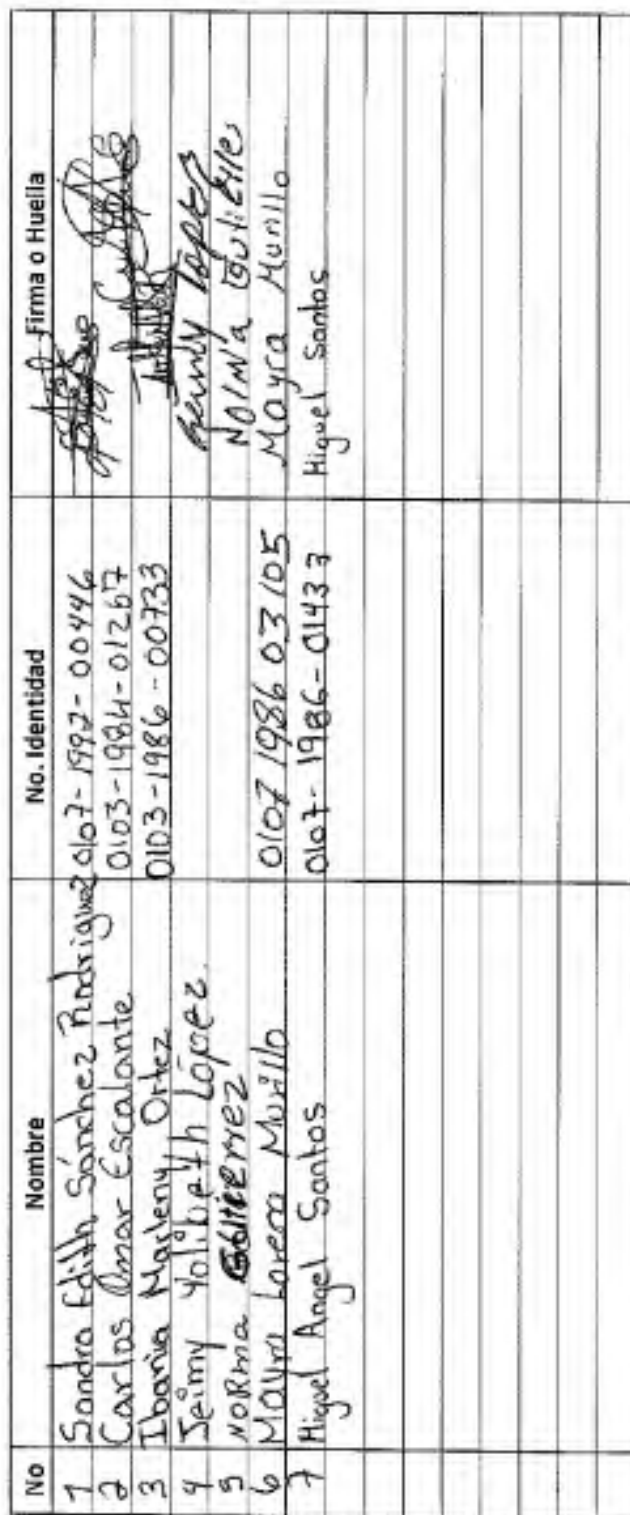 No Nombre No. Identidad Firma o Huella
1 Sandra Edith Sánchez Rodriguez 0107-1992-00446
2 Carlos Omar Escalante 0103-1984-01267
3 Ibania Marleny Ortez 0103-1986-00733
4 Jeimy Yolibeth López Jeimy Lopez
5 Norma Gutierrez Norma
6 Mayra Lorena Murillo 0107 1986 03105 Mayra Murillo
7 Miguel Angel Santos 0107-1986-01437 Miguel Santos